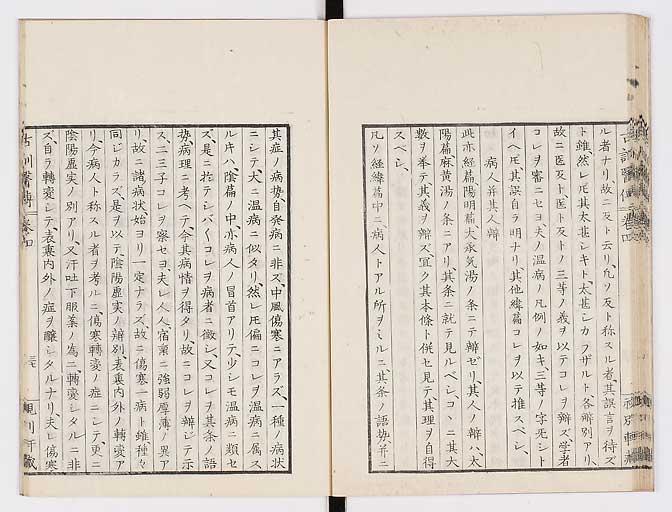 ル者ナリ故ニ反ト云リ、凡ソ反ト称スル者、其誤言ヲ待ズ
ト雖、然レ𪜈其太甚シキト、太甚シカラザルト各辨別アリ、
故ニ医反ト医ト反トノ三等ノ義ヲ以テコレヲ辨ズ、学者
コレヲ審ニセヨ夫ノ温病ノ凡例ノ如キ、三等ノ字死シト
イヘ𪜈、其誤自ラ明ナリ其他緯篇コレヲ以テ推スベシ、
病人并其人辨
此亦経篇陽明篇大承気湯ノ条ニテ辨ゼリ、其人ノ辨ハ、太
陽篇麻黄湯ノ条ニアリ、其条ニ就テ見ルベシ、コヽニ其大
數ヲ挙テ其義ヲ辨ズ、宜ク其本條ト併セ見テ、其理ヲ自得
スベシ、
凡ソ経緯篇中ニ病人トアル所ヲミルニ、其条ノ語勢并ニ
其症ノ病勢、自発病ニ非ズ、中風傷寒ニアラズ、一種ノ病状
ニシテ大ニ温病ニ似タリ、然レ𪜈偏ニコレヲ温病ニ属ス
ルキハ、陰篇ノ中、亦病人ノ冒首アリテ、少シモ温病ニ類セ
ズ、是ニ於テシバ〱コレヲ病者ニ徴シ、又コレヲ其条ノ語
勢病理ニ考ヘテ、今其病情ヲ得タリ、故ニコレヲ辨ジテ示
ス、二三子コレヲ察セヨ、夫レ人人、宿稟ニ強弱厚薄ノ異ア
リ、故ニ諸病状始ヨリ一定ナラズ、故ニ傷寒一病ト雖、種々
同ジカラズ、是ヲ以テ、陰陽虚実ノ辨別、表裏内外ノ轉変ア
リ、今病人ト称スル者ヲ考ルニ、傷寒轉変ノ症ニシテ、更ニ
陰陽虚実ノ別アリ、又汗吐下服薬ノ為ニ轉変シタルニ非
ズ、自ラ轉変シテ、表裏内外ノ症ヲ醸シタルナリ、夫レ傷寒